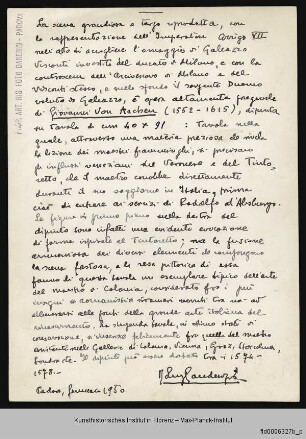 La scena grandiosa a tergo riprodotta, con
la rappresentazione dell'Imperatore Arrigo VII
nell'atto di accogliere l'omaggio di Galeazzo
Visconti investito del ducato di Milano, e con la
dell'Arcivescovo di Milano e del
Visconti stesso, e nello sfondo il sorgente Duomo
voluto da Galeazzo, è opera altamente pregevole
di Giovanni Von Aachen (1552-1615), dipinta
su tavola di cm 40 x 91. Tavola nella
quale, attraverso una materia preziosa che rivela
la lezione dei maestri fiamminghi, si precisano
gli influssi veneziani del Veronese e del Tinto-
retto, che il maestro conobbe direttamente
durante il suo soggiorno in Italia, prima
cioè di entrare ai servizi di Rodolfo d'Absburgo.
Le figure in primo piano sulla destra del
dipinto sono infatti una evidente evocazione
di forme ispirate al Tintoretto; ma la fusione
armoniosa dei diversi elementi che compongono
la scena fastosa, e la resa pittorica di essa
fanno di questa tavola un esemplare tipico dell'arte
del maestro di Colonia, considerato fra i più
insigni
alle fonti della grande arte italiana del
rinascimento. La stupenda tavola, in ottimo stato di
conservazione, fra quelle del maestro
esistenti nelle Gallerie di Colonia, Vienna, Graz, Stoccolma,
Londra etc. Il dipinto può essere datato tra il 1574-
1578.-
Padova, gennaio 1950
Kunsthistorisches Institut in Florenz – Max-Planck-Institut
fld0006327b_p